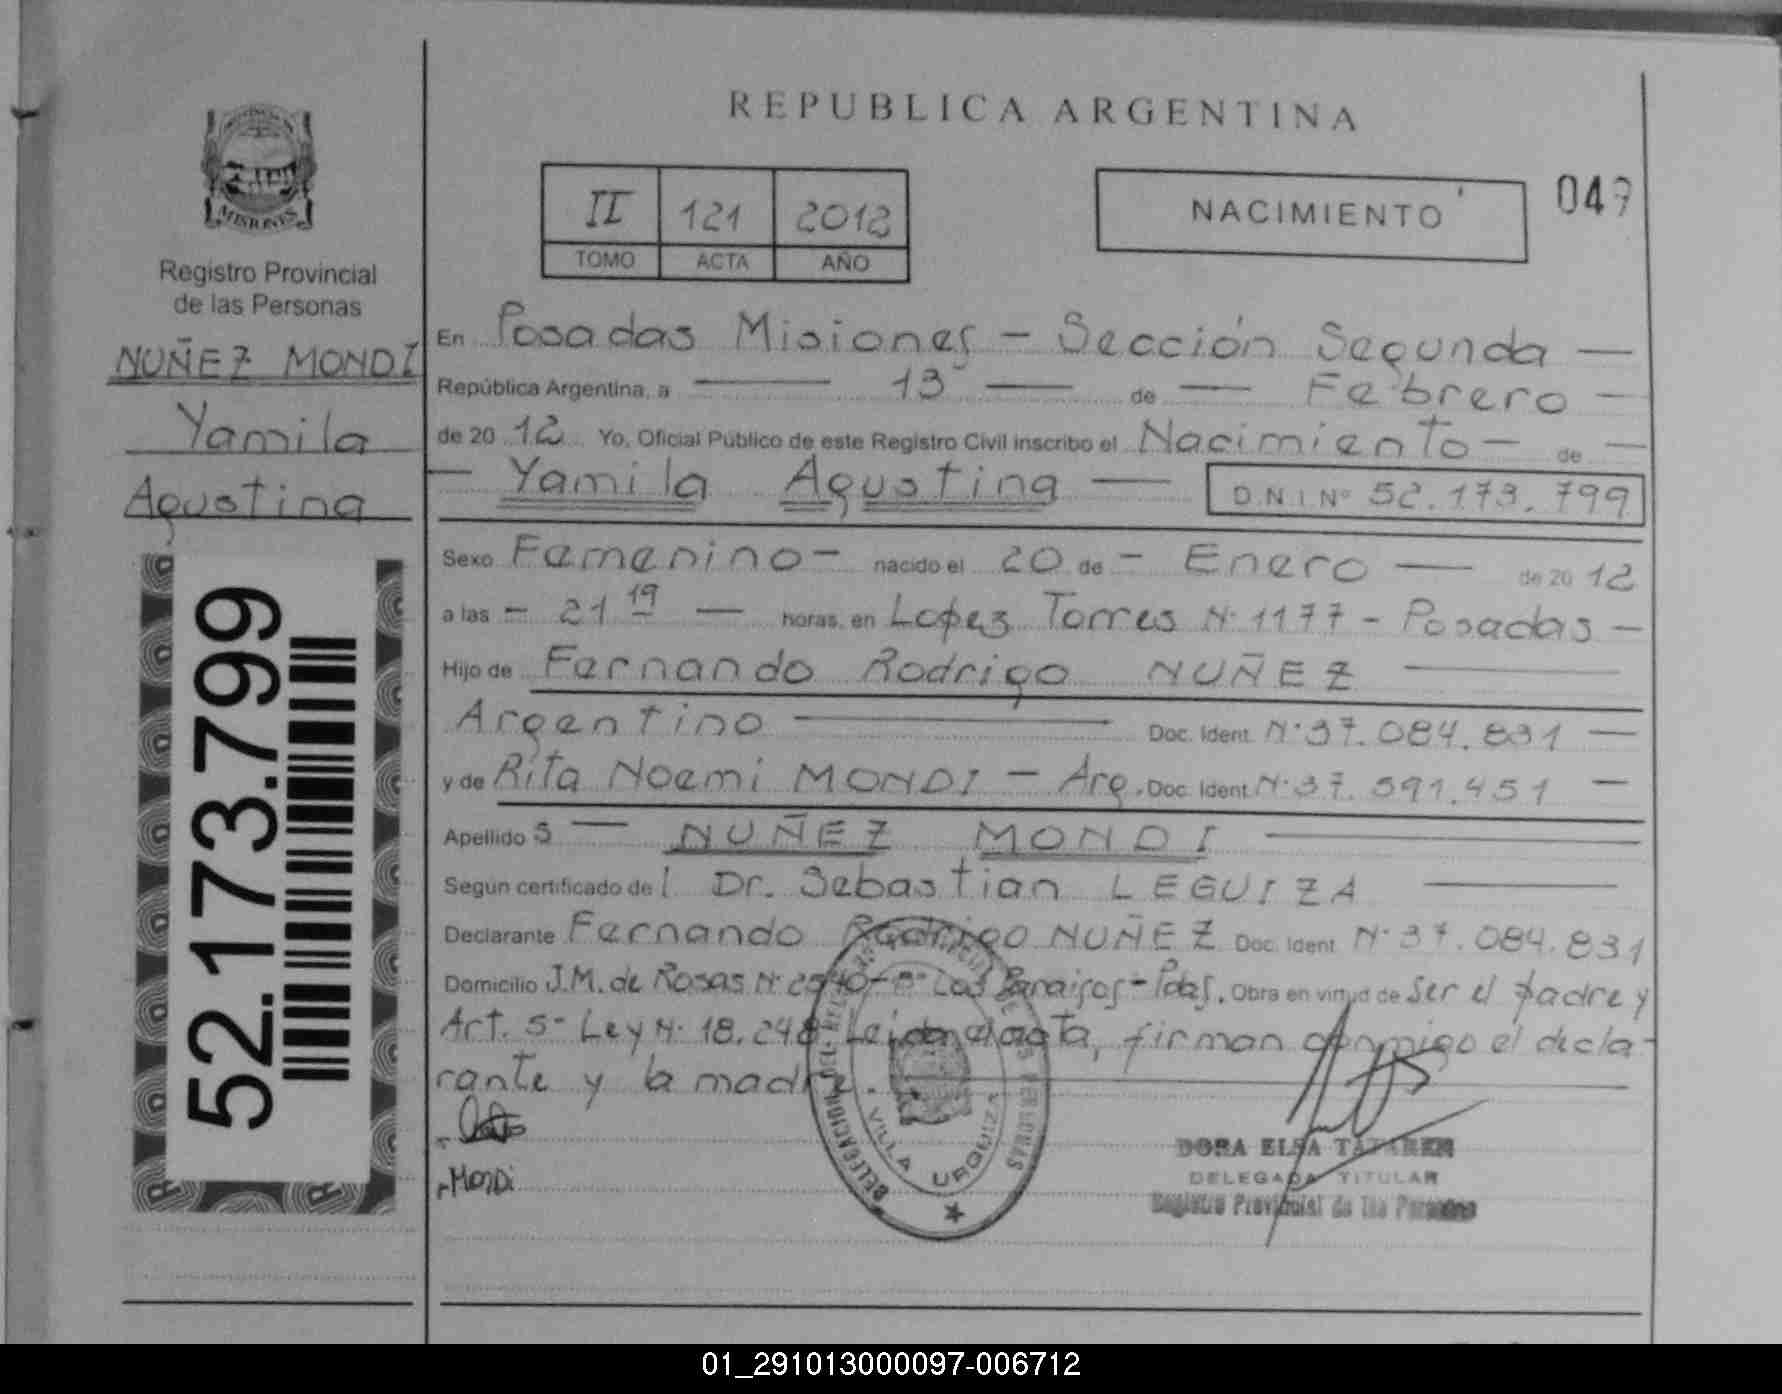 REPUBLICA ARGENTINA
MISIONES
Registro Provincial
de las Personas
NUÑEZ MONDI
Yamila
Agustina
52.173.799
II 121 2012
TOMO ACTA AÑO
NACIMIENTO
049
En Posadas Misiones - Sección Segunda -
República Argentina, a 13 de Febrero
de 2012 Yo, Oficial Público de este Registro Civil inscribo el Nacimiento - de
Yamila Agustina D.N.I Nº 52.173.799
Sexo Femenino - nacido el 20 de - Enero - de 2012
a las - 21 19 - horas, en Lopez Torres Nº 1177 - Posadas -
Hijo de Fernando Rodrigo NUÑEZ
Argentino Doc. Ident. Nº 37.084.831
y de Rita Noemi MONDI - Arg. Doc. Ident. Nº 37.591.451
Apellidos - NUÑEZ MONDI
Según certificado del Dr. Sebastian LEGUIZA
Declarante Fernando Rodrigo NUÑEZ Doc. Ident. Nº 37.084.831
Domicilio J.M. de Rosas Nº 2540 - Bº Los Paraisos - Pdas. Obra en virtud de Ser el padre y
Art. 5º Ley Nº 18.248 Leida el acta, firman conmigo el decla-
rante y la madre.
MONDi
DELEGACION DEL REGISTRO PROVINCIAL DE LAS PERSONAS
VILLA URQUIZA
DORA ELSA
DELEGADA TITULAR
Registro Provincial de las Personas
01_291013000097-006712